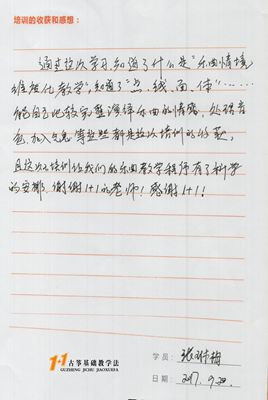 培训的收获和感想：
通过这次学习，知道了什么是"乐曲情境
维能化教学"，知道了"点，线，面，体"……
能自己比较完整演绎乐曲的情感，处理音
色，加入气息等等些都是这次培训的收获。
且这次培训给我们的乐曲教学程序有了科学
的安排，谢谢1+1的老师！感谢1+1！
1+1 古筝基础教学法
GUZHENG JICHU JIAOXUEFA
学员：
日期：2017.9.20